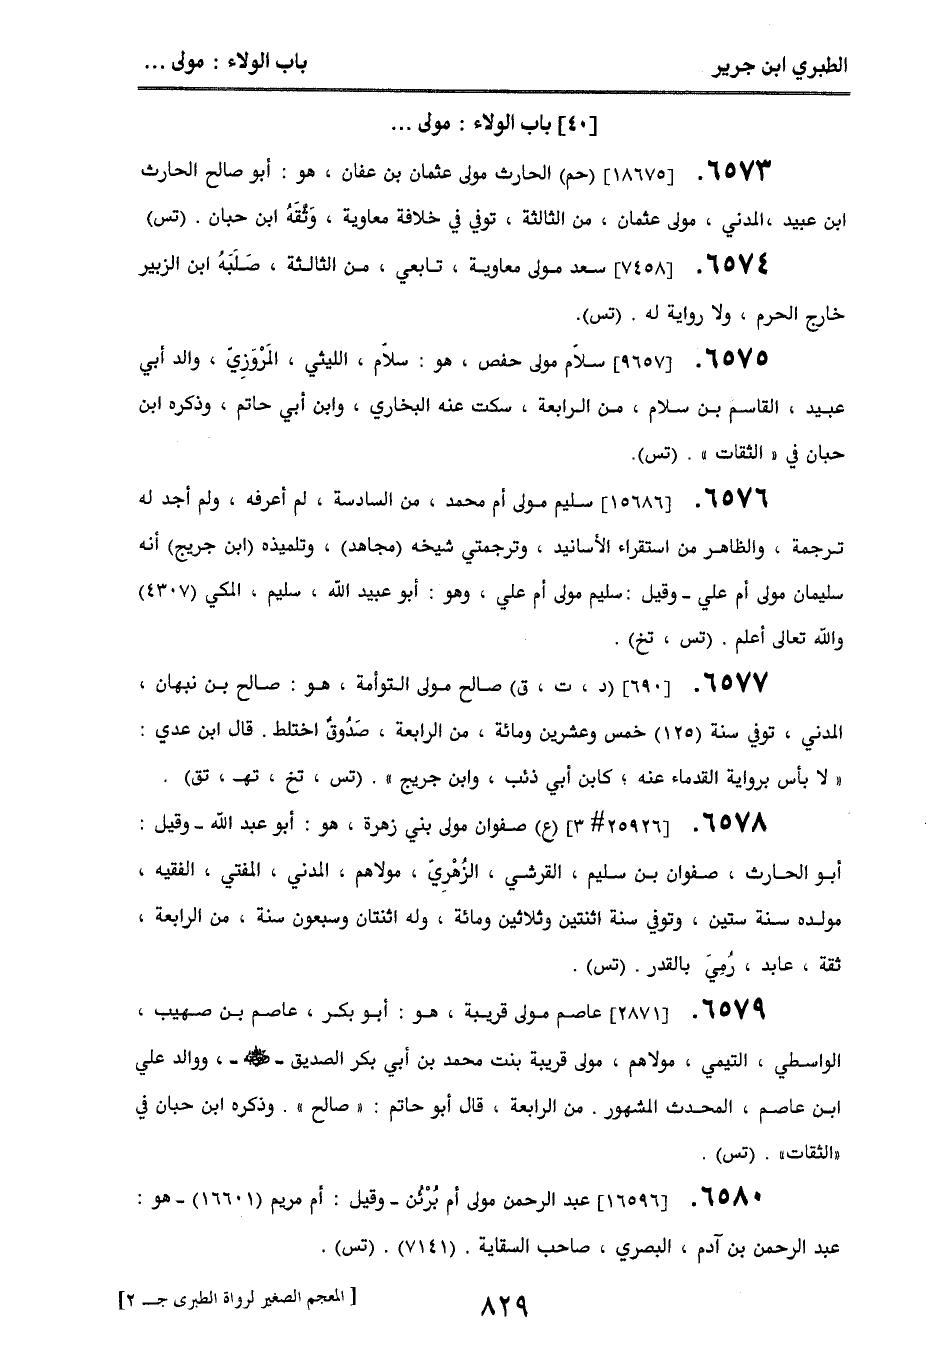 الطبري ابن جرير
باب الولاء : مولى ...
[٤٠] باب الولاء : مولى ...
٦٥٧٣. [١٨٦٧٥] (حم) الحارث مولى عثمان بن عفان ، هو : أبو صالح الحارث
ابن عبيد ،المدني ، مولى عثمان ، من الثالثة ، توفي في خلافة معاوية ، وَثَّقَهُ ابن حبان . (تس)
٦٥٧٤. [٧٤٥٨] سعد مولى معاوية ، تابعي ، من الثالثة ، صَلَبَهُ ابن الزبير
خارج الحرم ، ولا رواية له . (تس).
٦٥٧٥. [٩٦٥٧] سلاَّم مولى حفص ، هو : سلاَّم ، الليثي ، المَرْوَزِيّ ، والد أبي
عبيد ، القاسم بن سلام ، من الرابعة ، سكت عنه البخاري ، وابن أبي حاتم ، وذكره ابن
حبان في « الثقات » . (تس).
٦٥٧٦. [١٥٦٨٦] سليم مولى أم محمد ، من السادسة ، لم أعرفه ، ولم أجد له
ترجمة ، والظاهر من استقراء الأسانيد ، وترجمتي شيخه (مجاهد) ، وتلميذه (ابن جريج) أنه
سليمان مولى أم علي ـ وقيل :سليم مولى أم علي ، وهو : أبو عبيد الله ، سليم ، المكي (٤٣٠٧)
والله تعالى أعلم . (تس ، تخ) .
٦٥٧٧. [٦٩٠] (د ، ت ، ق) صالح مولى التوأمة ، هو : صالح بن نبهان ،
المدني ، توفي سنة (١٢٥) خمس وعشرين ومائة ، من الرابعة ، صَدُوقٌ اختلط . قال ابن عدي :
« لا بأس برواية القدماء عنه ؛ كابن أبي ذئب ، وابن جريج » . (تس ، تخ ، تهـ ، تق) .
٦٥٧٨. [٢٥٩٢٦# ٣] (ع) صفوان مولى بني زهرة ، هو : أبو عبد الله ـ وقيل :
أبو الحارث ، صفوان بن سليم ، القرشي ، الزُهْرِيّ ، مولاهم ، المدني ، المفتي ، الفقيه ،
مولده سنة ستين ، وتوفي سنة اثنتين وثلاثين ومائة ، وله اثنتان وسبعون سنة ، من الرابعة ،
ثقة ، عابد ، رُمِيَ بالقدر . (تس) .
٦٥٧٩. [٢٨٧١] عاصم مولى قريبة ، هو : أبو بكر ، عاصم بن صهيب ،
الواسطي ، التيمي ، مولاهم ، مولى قريبة بنت محمد بن أبي بكر الصديق ـ ﷺ ـ ، ووالد علي
ابن عاصم ، المحدث المشهور . من الرابعة ، قال أبو حاتم : « صالح » . وذكره ابن حبان في
«الثقات» . (تس) .
٦٥٨٠. [١٦٥٩٦] عبد الرحمن مولى أم بُرْثُن ـ وقيل : أم مريم (١٦٦٠١) ـ هو :
عبد الرحمن بن آدم ، البصري ، صاحب السقاية . (٧١٤١) . (تس) .
٨٢٩
[ المعجم الصغير لرواة الطبرى جـ ٢]